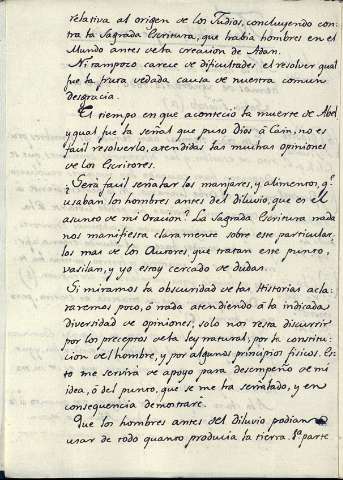 relativa al origen de los Judios, concluyendo con-
tra la Sagrada Escritura, que habia hombres en el
Mundo ántes de la creacion de Adan.
Ni tampoco carece de dificultades el resolver qual
fue la fruta vedada causa de nuestra comun
desgracia.
El tiempo en que aconteció la muerte de Abel,
y qual fue la señal que puso Dios á Cain, no es
facil resolverlo, atendidas las muchas opiniones
de los Escritores.
¿Será facil señalar los manjares, y alimentos, q.e
usaban los hombres antes del diluvio, que es el
asunto de mi Oracion? La Sagrada Escritura nada
nos manifiesta claramente sobre este particular,
los mas de los Autores que tratan este punto,
vasilan, y yo estoy cercado de dudas.
Si miramos la obscuridad de las Historias acla-
raremos poco, ó nada atendiendo á la indicada
diversidad de opiniones, solo nos resta discurrir
por los preceptos de la ley natural, por la constitu-
cion del hombre, y por algunos principios fisicos. Es-
to me servirá de apoyo para desempeño de mi
idea, ó del punto, que se me ha señalado, y en
consequencia demostraré.
Que los hombres antes del diluvio podian
usar de todo quanto producia la tierra. parte